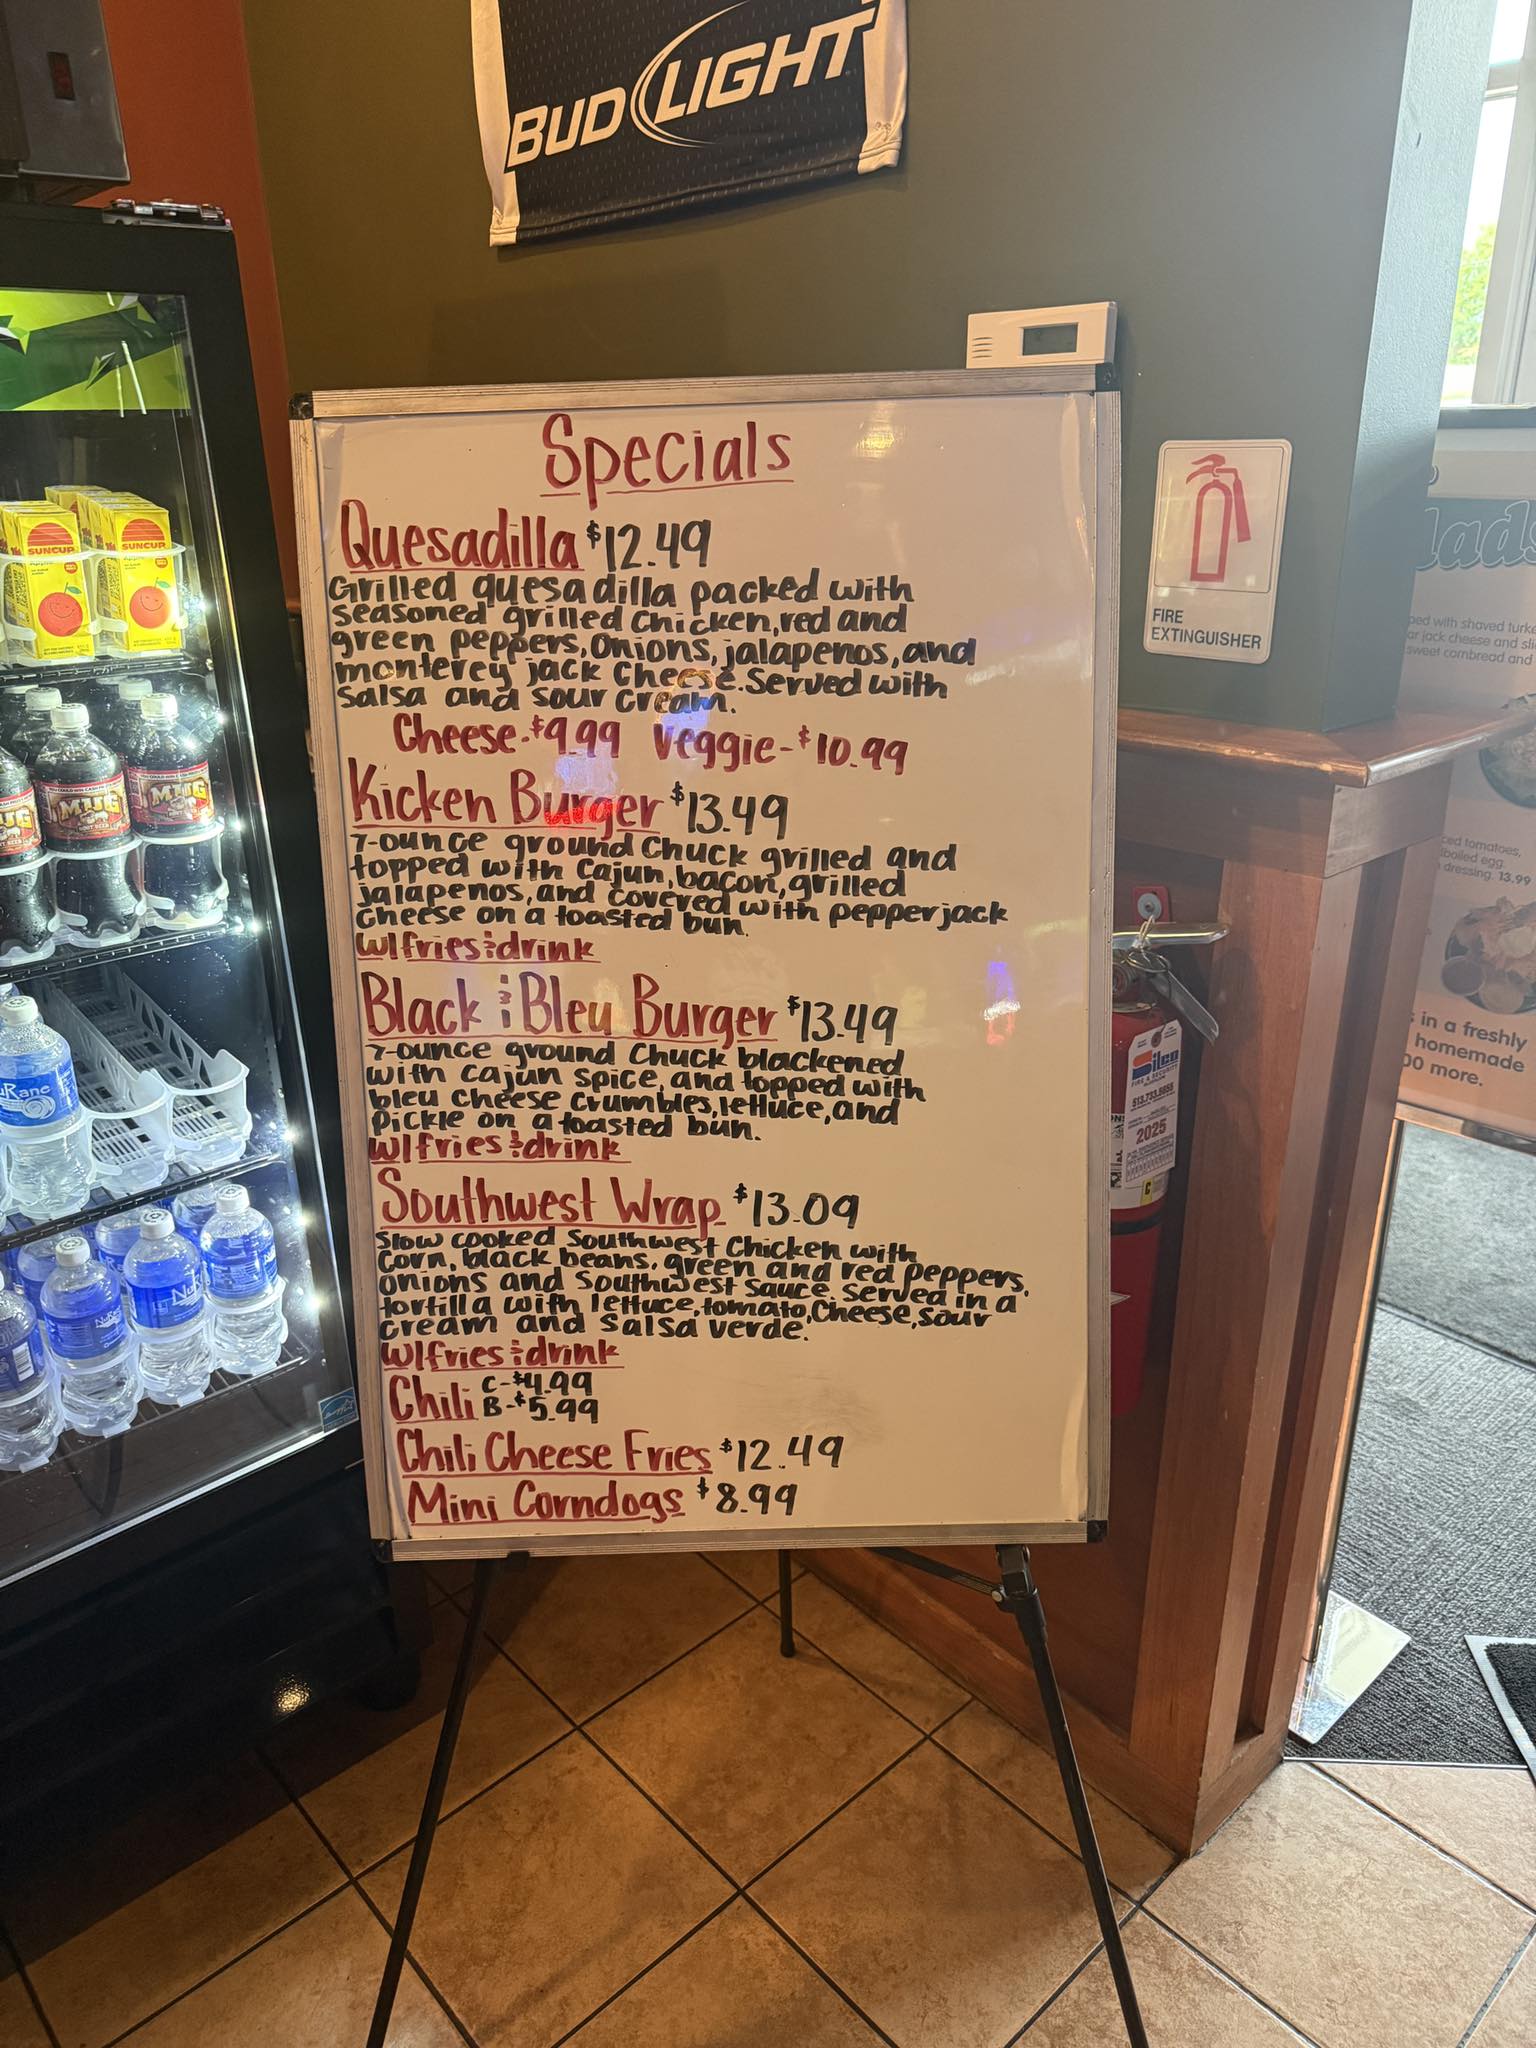 BUD LIGHT
Specials
Quesadilla $12.49
Grilled quesadilla packed with
seasoned grilled Chicken, red and
green peppers, Onions, jalapenos, and
monterey jack Cheese. Served with
Salsa and sour cream.
Cheese-$9.99 Veggie-$10.99
Kicken Burger $13.49
7-ounce ground Chuck grilled and
topped with Cajun, bacon, grilled
jalapenos, and covered with pepperjack
Cheese on a toasted bun.
w/fries & drink
Black & Bleu Burger $13.49
7-ounce ground Chuck blackened
with cajun spice, and topped with
bleu cheese crumbles, lettuce, and
Pickle on a toasted bun.
w/fries & drink
Southwest Wrap $13.09
Slow cooked Southwest Chicken with
Corn, black beans, green and red peppers,
onions and Southwest sauce. Served in a
tortilla with lettuce, tomato, Cheese, sour
cream and salsa verde.
w/fries & drink
Chili C-$4.99
B-$5.99
Chili Cheese Fries $12.49
Mini Corndogs $8.99
FIRE
EXTINGUISHER
SUNCUP
SUNCUP
MUG
MUG
NuRane
Silco
FIRE & SECURITY
2025
with shaved turke
jack cheese and
sweet cornbread and
tomatoes,
boiled egg.
dressing. 13.99
in a freshly
homemade
more.